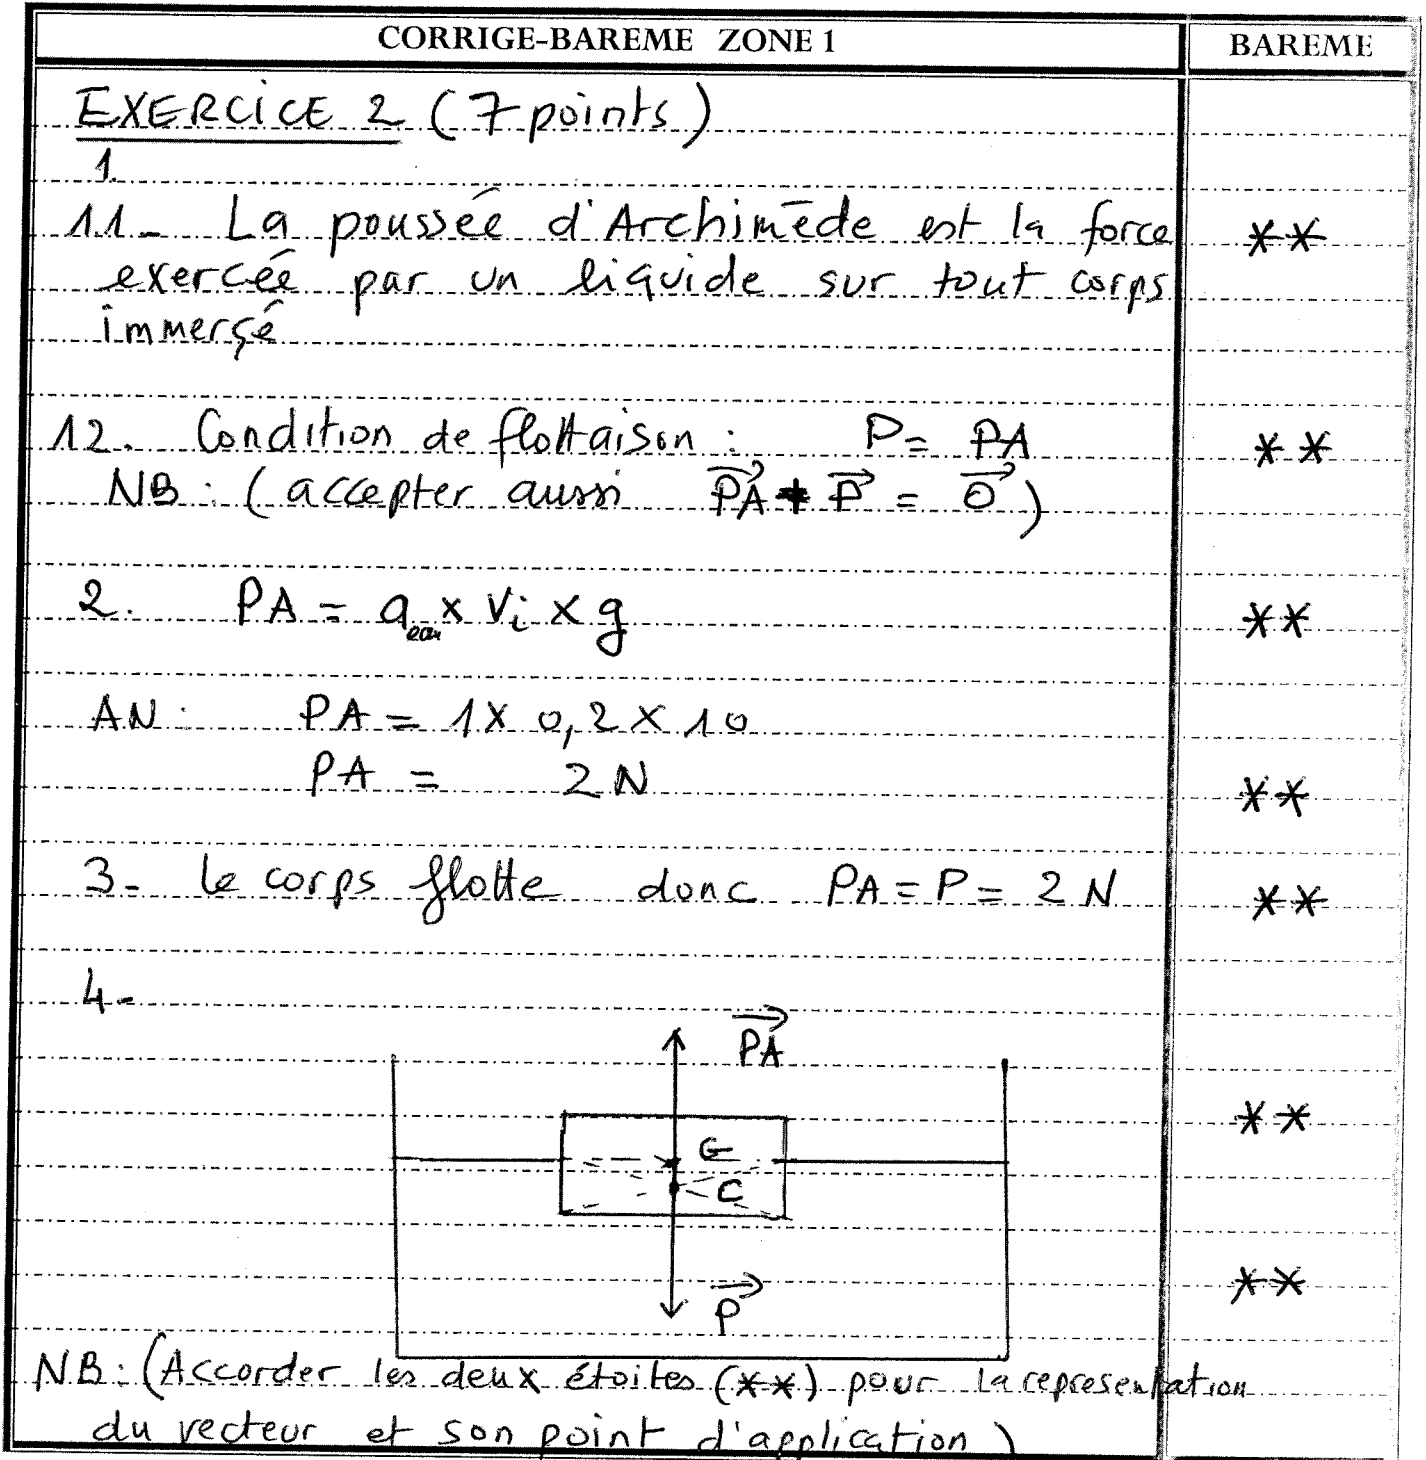 CORRIGE-BAREME ZONE 1 BAREME
EXERCICE 2 (7 points)
1.
11- La poussée d'Archimède est la force **
exercée par un liquide sur tout corps
immergé
12. Condition de flottaison : P = PA **
NB : (accepter aussi PA + P = O)
2. PA = a eau x Vi x g **
AN : PA = 1 x 0,2 x 10
PA = 2 N **
3- le corps flotte donc PA = P = 2 N **
4-
PA
**
G
C
P **
NB : (Accorder les deux étoiles (**) pour la representation
du vecteur et son point d'application)